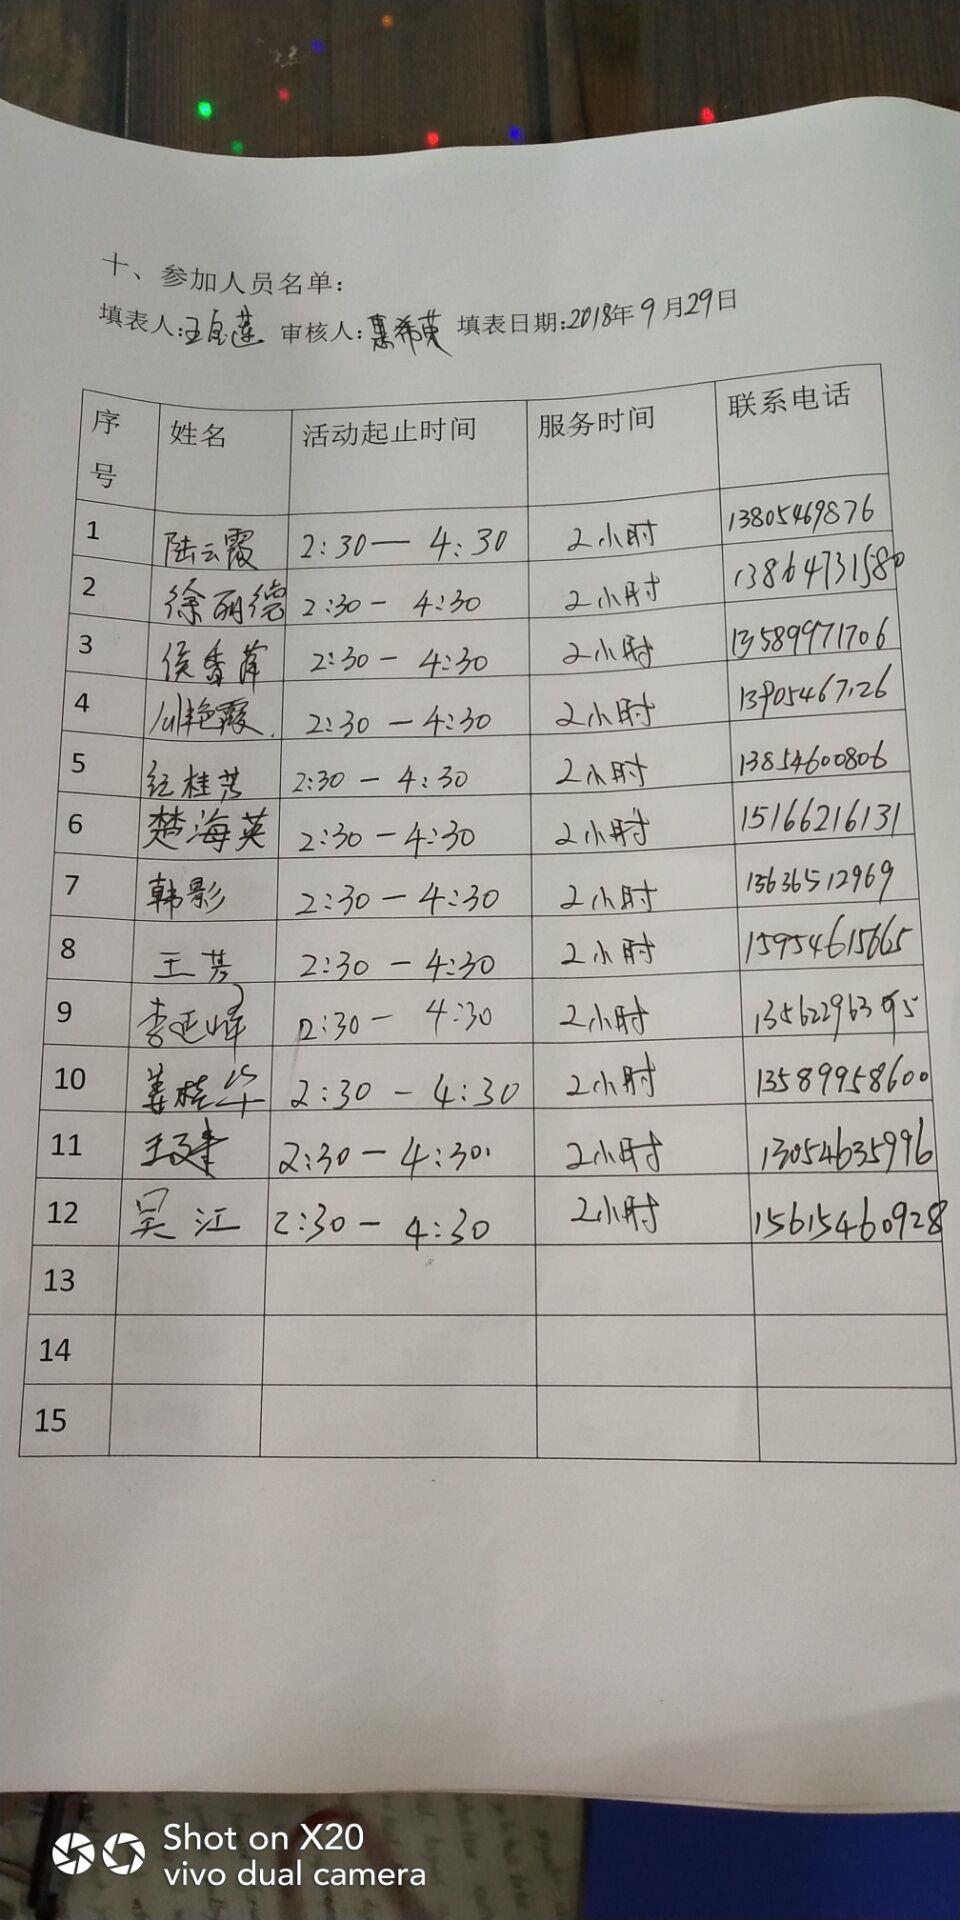 十、参加人员名单:
填表人:王 莲 审核人:惠希英 填表日期:2018年9月29日
序号 姓名 活动起止时间 服务时间 联系电话
1 陆云霞 2:30— 4:30 2小时 13805469876
2 徐丽德 2:30- 4:30 2小时 13864731580
3 侯香萍 2:30- 4:30 2小时 13589971706
4 艳霞 2:30-4:30 2小时 13905467126
5 纪桂芳 2:30-4:30 2小时 13854600806
6 楚海英 2:30-4:30 2小时 15166216131
7 韩影 2:30-4:30 2小时 13636512969
8 王芳 2:30-4:30 2小时 15954615665
9 李延峰 2:30- 4:30 2小时
10 姜桂华 2:30 - 4:30 2小时 13589958600
11 2:30-4:30 2小时 13054635996
12 吴江 2:30- 4:30 2小时 15615460928
13
14
15
Shot on X20
vivo dual camera